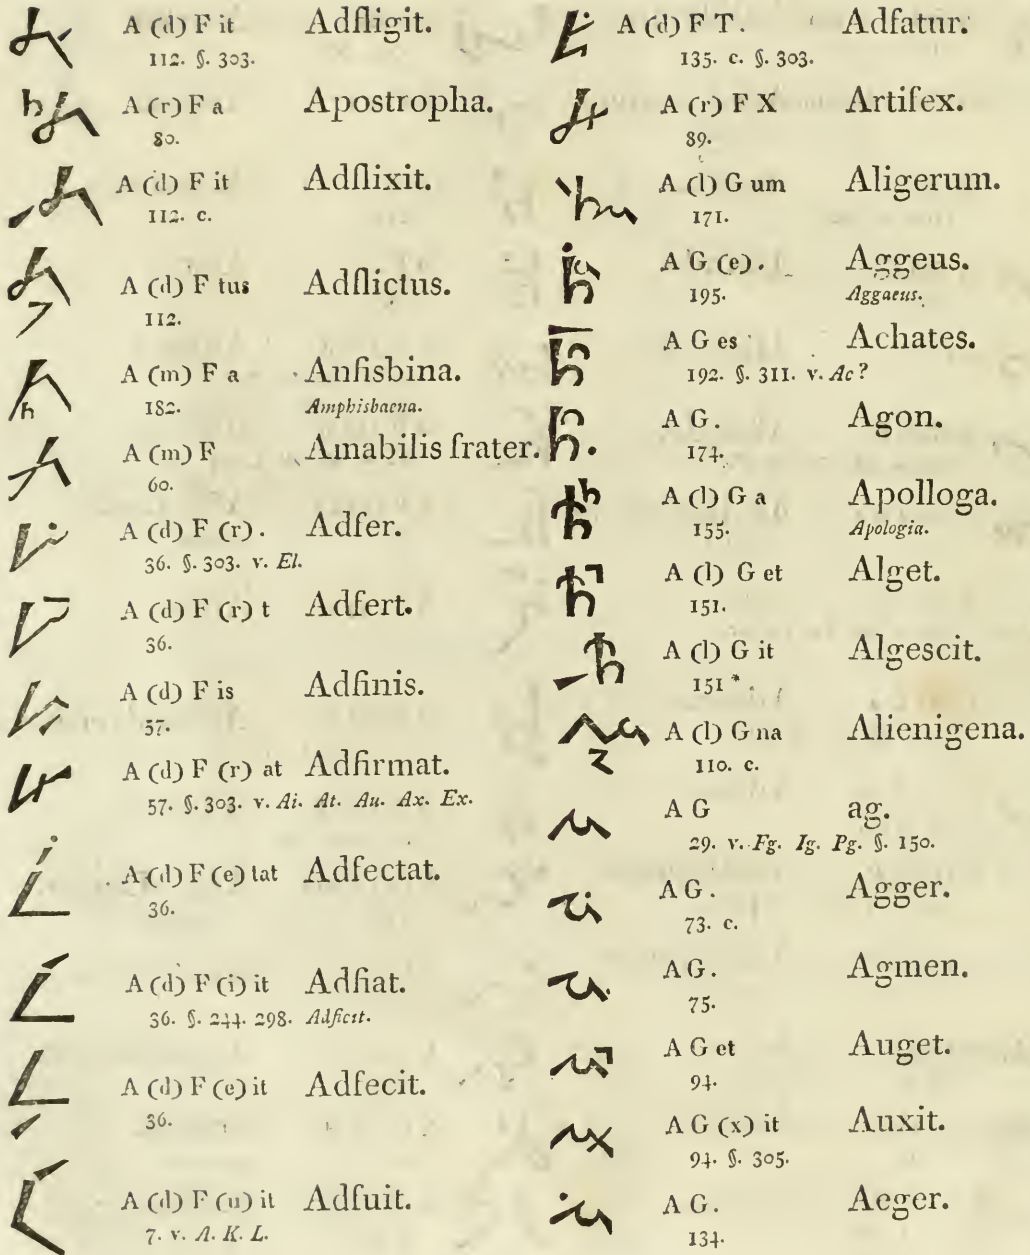 A (d) F it Adfligit.
112. §. 303.
A (r) F a Apostropha.
80.
A (d) F it Adflixit.
112. c.
A (d) F tus Adflictus.
112.
A (m) F a Anfisbina.
182. Amphisbaena.
A (m) F Amabilis frater.
60.
A (d) F (r). Adfer.
36. §. 303. v. El.
A (d) F (r) t Adfert.
36.
A (d) F is Adfinis.
57.
A (d) F (r) at Adfirmat.
57. §. 303. v. Ai. At. Au. Ax. Ex.
A (d) F (e) tat Adfectat.
36.
A (d) F (i) it Adfiat.
36. §. 244. 298. Adficit.
A (d) F (e) it Adfecit.
36.
A (d) F (u) it Adfuit.
7. v. A. K. L.
A (d) F T. Adfatur.
135. c. §. 303.
A (r) F X Artifex.
89.
A (l) G um Aligerum.
171.
A G (e). Aggeus.
195. Aggaeus.
A G es Achates.
192. §. 311. v. Ac?
A G. Agon.
174.
A (l) G a Apolloga.
155. Apologia.
A (l) G et Alget.
151.
A (l) G it Algescit.
151*.
A (l) G na Alienigena.
110. c.
A G ag.
29. v. Fg. Ig. Pg. §. 150.
A G. Agger.
73. c.
A G. Agmen.
75.
A G et Auget.
94.
A G (x) it Auxit.
94. §. 305.
A G. Aeger.
134.